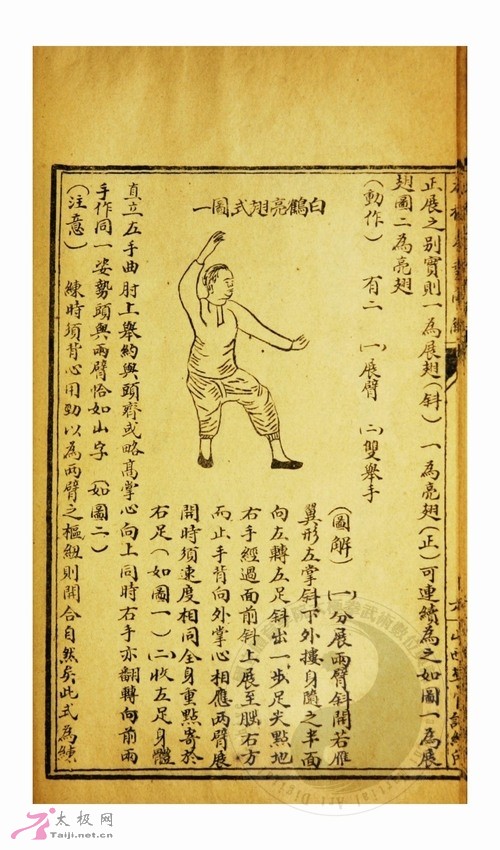 正展之别實則一為展翅(斜) 一為亮翅(正)可連續為之如圖一為展
翅圖二為亮翅
(動作) 有二 (一)展臂 (二)雙舉手
白鶴亮翅式圖一
(圖解) (一)分展兩臂斜開若雁
翼形左掌斜下外摟身隨之半面
向左轉左足斜出一步足尖點地
右手經過面前斜上展至腦右方
而止手背向外掌心相應兩臂展
開時須速度相同全身重點寄於
右足(如圖一)(二)收左足身體
直立左手曲肘上舉約與頭齊或略高掌心向上同時右手亦翻轉向前兩
手作同一姿勢頭與兩臂恰如山字(如圖二)
(注意) 練時須背心用勁以為兩臂之樞紐則開合自然矣此式為練
太极网
Taiji.net.cn